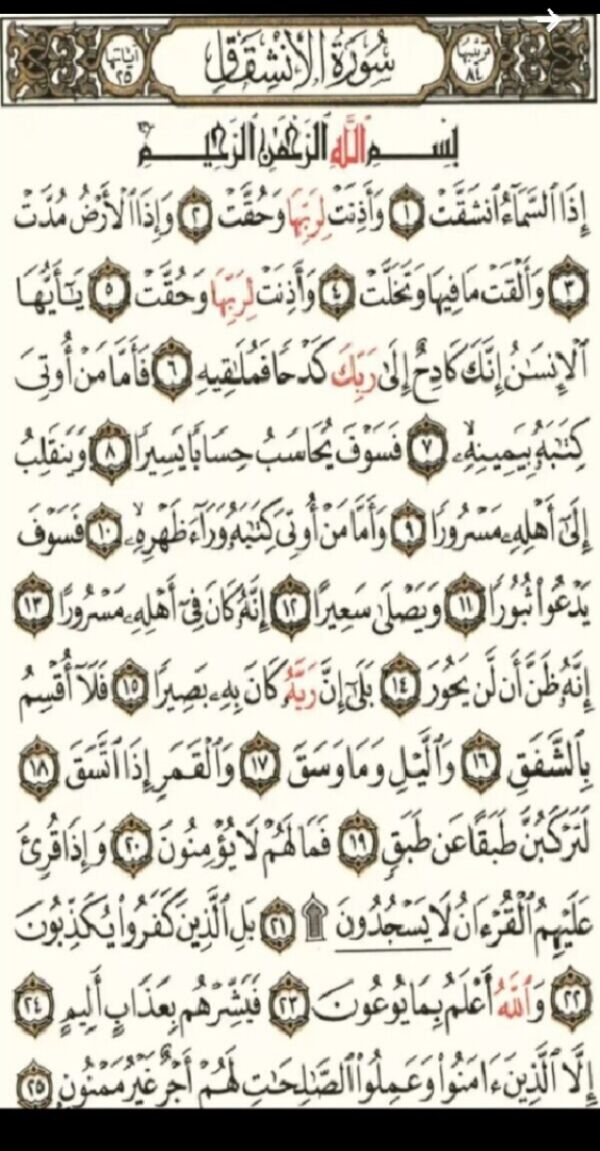 ترتيبها ٨٤ سُورَةُ الانْشِقَاقِ آياتها ٢٥
بِسْمِ ٱللَّهِ ٱلرَّحْمَٰنِ ٱلرَّحِيمِ
إِذَا ٱلسَّمَآءُ ٱنشَقَّتْ ١ وَأَذِنَتْ لِرَبِّهَا وَحُقَّتْ ٢ وَإِذَا ٱلْأَرْضُ مُدَّتْ
٣ وَأَلْقَتْ مَا فِيهَا وَتَخَلَّتْ ٤ وَأَذِنَتْ لِرَبِّهَا وَحُقَّتْ ٥ يَٰٓأَيُّهَا
ٱلْإِنسَٰنُ إِنَّكَ كَادِحٌ إِلَىٰ رَبِّكَ كَدْحًا فَمُلَٰقِيهِ ٦ فَأَمَّا مَنْ أُوتِىَ
كِتَٰبَهُۥ بِيَمِينِهِۦ ٧ فَسَوْفَ يُحَاسَبُ حِسَابًا يَسِيرًا ٨ وَيَنقَلِبُ
إِلَىٰٓ أَهْلِهِۦ مَسْرُورًا ٩ وَأَمَّا مَنْ أُوتِىَ كِتَٰبَهُۥ وَرَآءَ ظَهْرِهِۦ ١٠ فَسَوْفَ
يَدْعُوا۟ ثُبُورًا ١١ وَيَصْلَىٰ سَعِيرًا ١٢ إِنَّهُۥ كَانَ فِىٓ أَهْلِهِۦ مَسْرُورًا ١٣
إِنَّهُۥ ظَنَّ أَن لَّن يَحُورَ ١٤ بَلَىٰٓ إِنَّ رَبَّهُۥ كَانَ بِهِۦ بَصِيرًا ١٥ فَلَآ أُقْسِمُ
بِٱلشَّفَقِ ١٦ وَٱلَّيْلِ وَمَا وَسَقَ ١٧ وَٱلْقَمَرِ إِذَا ٱتَّسَقَ ١٨
لَتَرْكَبُنَّ طَبَقًا عَن طَبَقٍ ١٩ فَمَا لَهُمْ لَا يُؤْمِنُونَ ٢٠ وَإِذَا قُرِئَ
عَلَيْهِمُ ٱلْقُرْءَانُ لَا يَسْجُدُونَ ۩ ٢١ بَلِ ٱلَّذِينَ كَفَرُوا۟ يُكَذِّبُونَ
٢٢ وَٱللَّهُ أَعْلَمُ بِمَا يُوعُونَ ٢٣ فَبَشِّرْهُم بِعَذَابٍ أَلِيمٍ ٢٤
إِلَّا ٱلَّذِينَ ءَامَنُوا۟ وَعَمِلُوا۟ ٱلصَّٰلِحَٰتِ لَهُمْ أَجْرٌ غَيْرُ مَمْنُونٍۭ ٢٥